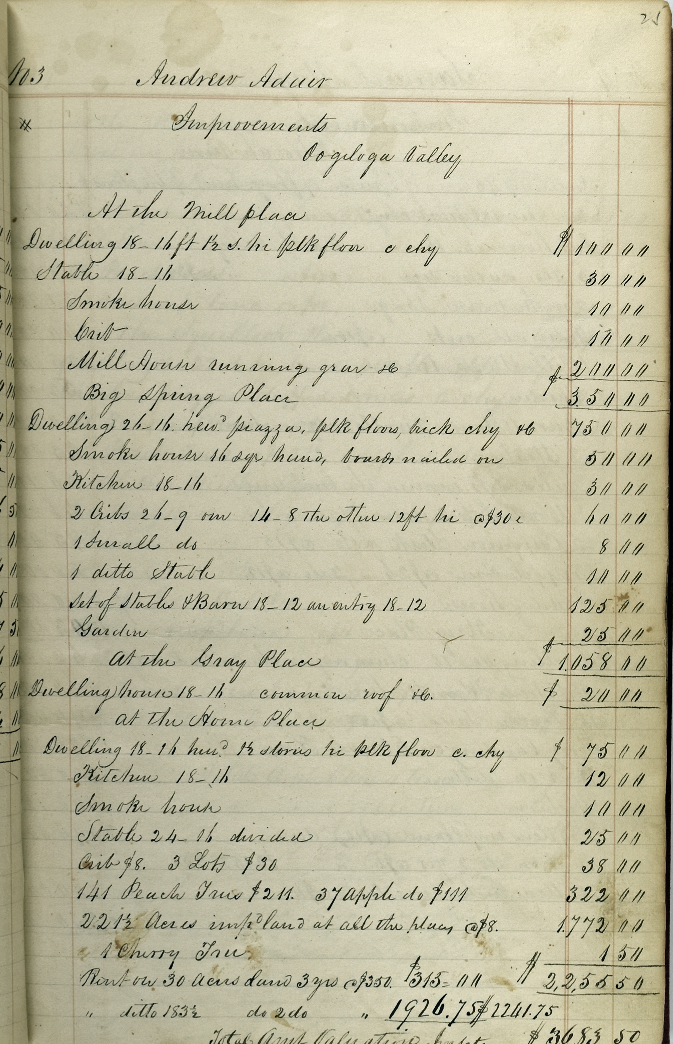 25
No. 3 Andrew Adair
Improvements
Oogiloga Valley
At the Mill place
Dwelling 18-16 ft 1½ s. hi plk floor c chy $100 00
Stable 18-16 30 00
Smoke house 10 00
Crib 10 00
Mill House running gear &c 200 00
Big Spring Place $350 00
Dwelling 26-16. hewd piazza, plk floors, brick chy &c 750 00
Smoke house 16 sqr hewd, boards nailed on 50 00
Kitchen 18-16 30 00
2 Cribs 26-9 one 14-8 the other 12ft hi @ $30 60 00
1 Small do 8 00
1 ditto Stable 10 00
set of Stables & Barn 18-12 an entry 18-12 125 00
Garden 25 00
At the Gray Place $1,058 00
Dwelling house 18-16 common roof &c. $20 00
at the Home Place
Dwelling 18-16 hewd 1½ stories hi plk floor c. chy $75 00
Kitchen 18-16 12 00
Smoke house 10 00
Stable 24-16 divided 25 00
Crib $8. 3 Lots $30 38 00
141 Peach Trees $211. 37 apple do $111 322 00
221½ Acres impd land at all the places @ $8. 1772 00
1 Cherry Tree 1 50
Rent on 30 acres land 3 yrs @ $350. $315-00 $2,255 50
" ditto 183½ do 2 do " 1926.75 $2241.75
Total Amt Valuation $3683 50